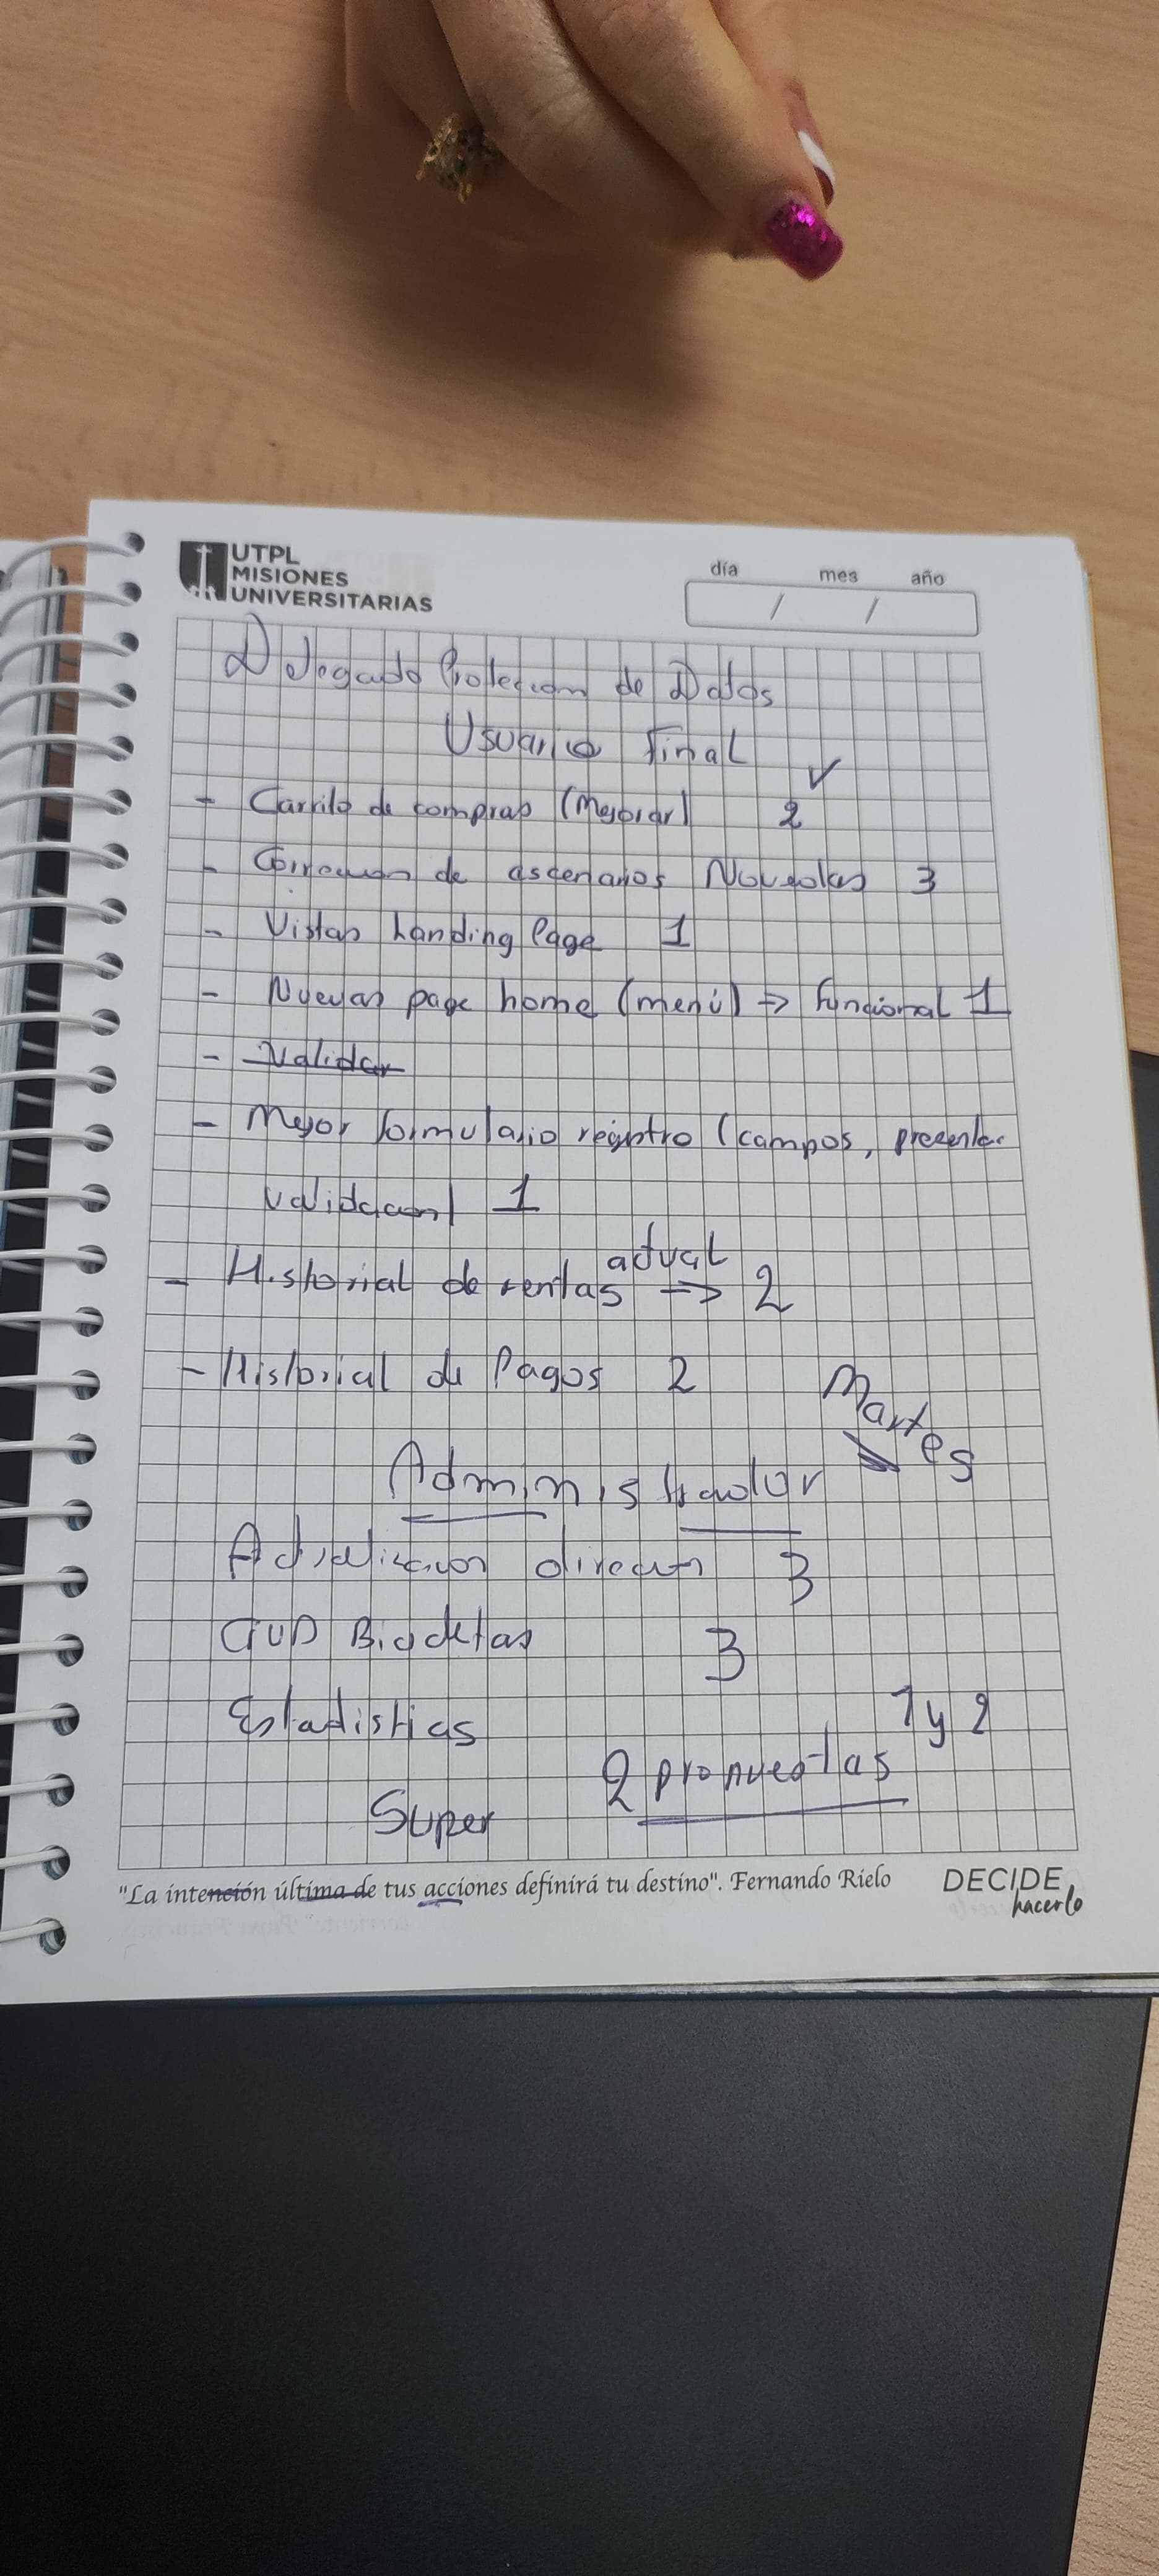 UTPL
MISIONES
UNIVERSITARIAS
día mes año
/ /
Delegado Proteccion de Datos
Usuario Final ✓
- Carrito de compras (Mejorar) 2
- de 3
- Vistas Landing Page 1
- Nuevas page home (menú) => funcional 1
- Validar
- Mejor formulario registro (campos, presentar
validacion) 1
- Historial de rentas actual -> 2
- Historial de Pagos 2
Martes
Administrador
3
CRUD Bicicletas 3
Estadisticas 1 y 2
2 propuestas
Super
"La intención última de tus acciones definirá tu destino". Fernando Rielo
DECIDE
hacerlo